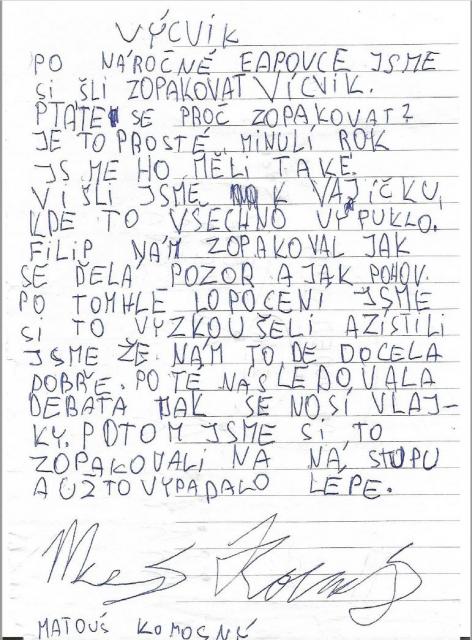 VÝCVIK
PO NÁROČNÉ EAPOVCE JSME
SI ŠLI ZOPAKOVAT VÍCVIK.
PTÁTE SE PROČ ZOPAKOVAT?
JE TO PROSTÉ MINULÍ ROK
JSME HO MĚLI TAKÉ.
VIŠLI JSME K VAJÍČKU,
KDE TO VŠECHNO VYPUKLO.
FILIP NÁM ZOPAKOVAL JAK
SE DĚLÁ POZOR A JAK POHOV.
PO TOMHLE LOPOCENÍ JSME
SI TO VYZKOUŠELI A ZISTILI
JSME ŽE NÁM TO DE DOCELA
DOBŘE. PO TÉ NÁSLEDOVALA
DEBATA JAK SE NOSÍ VLAJ-
KY. POTOM JSME SI TO
ZOPAKOVALI NA NÁSTUPU
A UŽ TO VYPADALO LÉPE.
MATOUŠ KOMOSNÝ